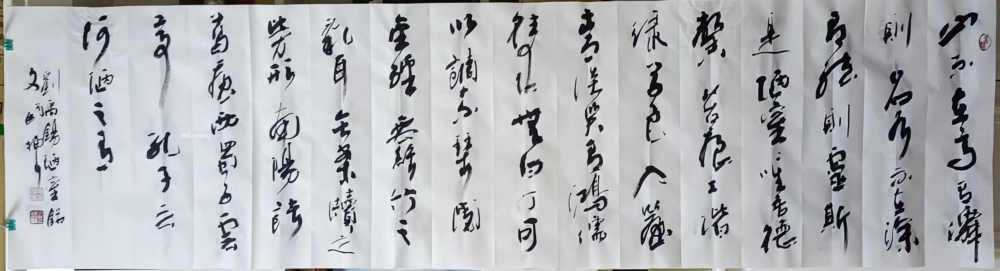 山不在高有僊
則名水不在深
有龍則靈斯
是陋室惟吾德
馨苔痕上階
綠草色入簾
青談笑有鴻儒
往來無白丁可
以調素琴閱
金經無絲竹之
亂耳無案牘之
勞形南陽諸
葛廬西蜀子雲
亭孔子云
何陋之有
劉禹錫陋室銘